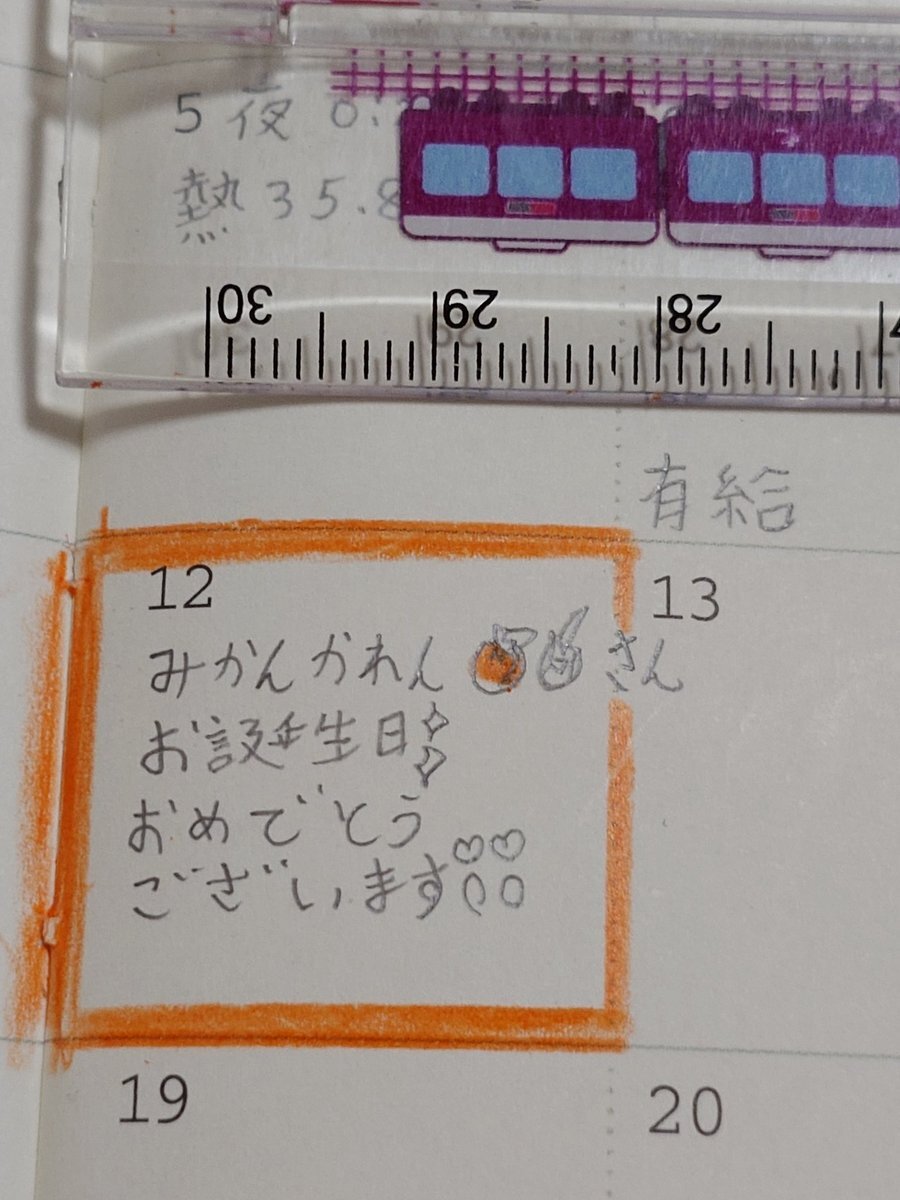 5 夜 0.
熱 35.8
30 29 28
有給
12
13
みかんかれん🍊さん
お誕生日
おめでとう
ございます
19
20